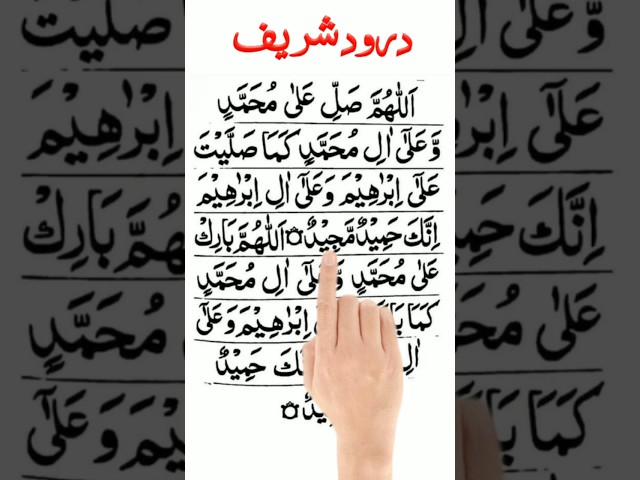 درود شریف
اَللّٰهُمَّ صَلِّ عَلٰی مُحَمَّدٍ
وَّعَلٰٓی اٰلِ مُحَمَّدٍ کَمَا صَلَّیْتَ
عَلٰٓی اِبْرٰهِیْمَ وَعَلٰٓی اٰلِ اِبْرٰهِیْمَ
اِنَّكَ حَمِیْدٌ مَّجِیْدٌ۝ اَللّٰهُمَّ بَارِكْ
عَلٰی مُحَمَّدٍ وَّعَلٰٓی اٰلِ مُحَمَّدٍ
کَمَا اِبْرٰهِیْمَ وَعَلٰٓی
اٰلِ حَمِیْدٌ